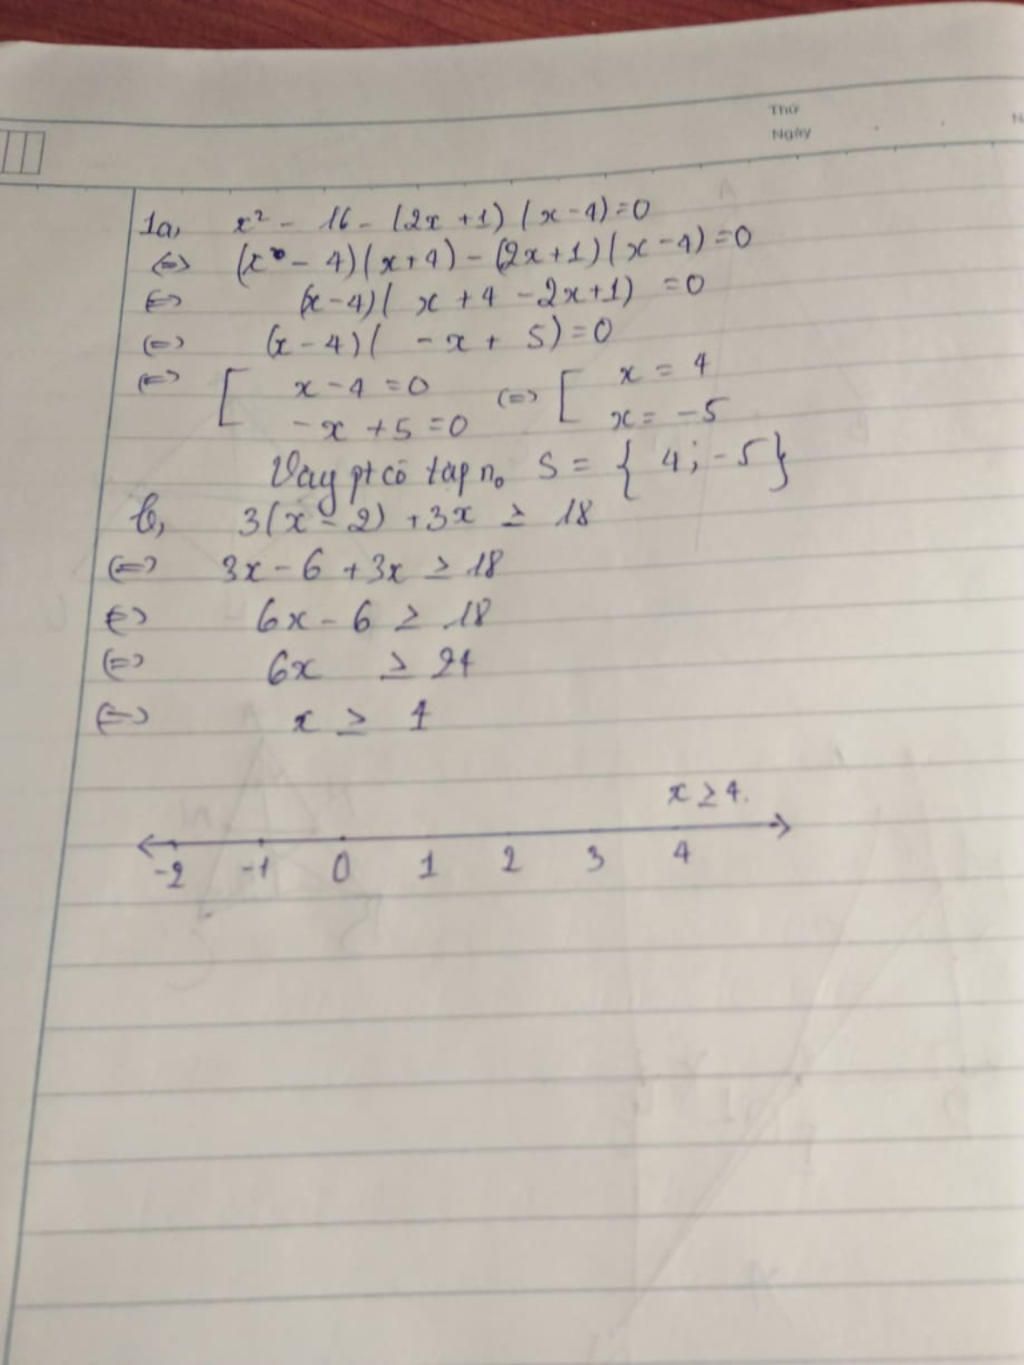 Thứ
Ngày
1a, x² - 16 - (2x + 1)(x - 4) = 0
<=> (x - 4)(x + 4) - (2x + 1)(x - 4) = 0
<=> (x - 4)(x + 4 - 2x + 1) = 0
<=> (x - 4)( - x + 5) = 0
<=> [ x - 4 = 0 <=> [ x = 4
- x + 5 = 0 x = -5
Vay pt có tap n₀ S = { 4 ; -5 }
b, 3(x - 2) + 3x ≥ 18
<=> 3x - 6 + 3x ≥ 18
<=> 6x - 6 ≥ 18
<=> 6x ≥ 24
<=> x ≥ 4
x ≥ 4.
-2 -1 0 1 2 3 4